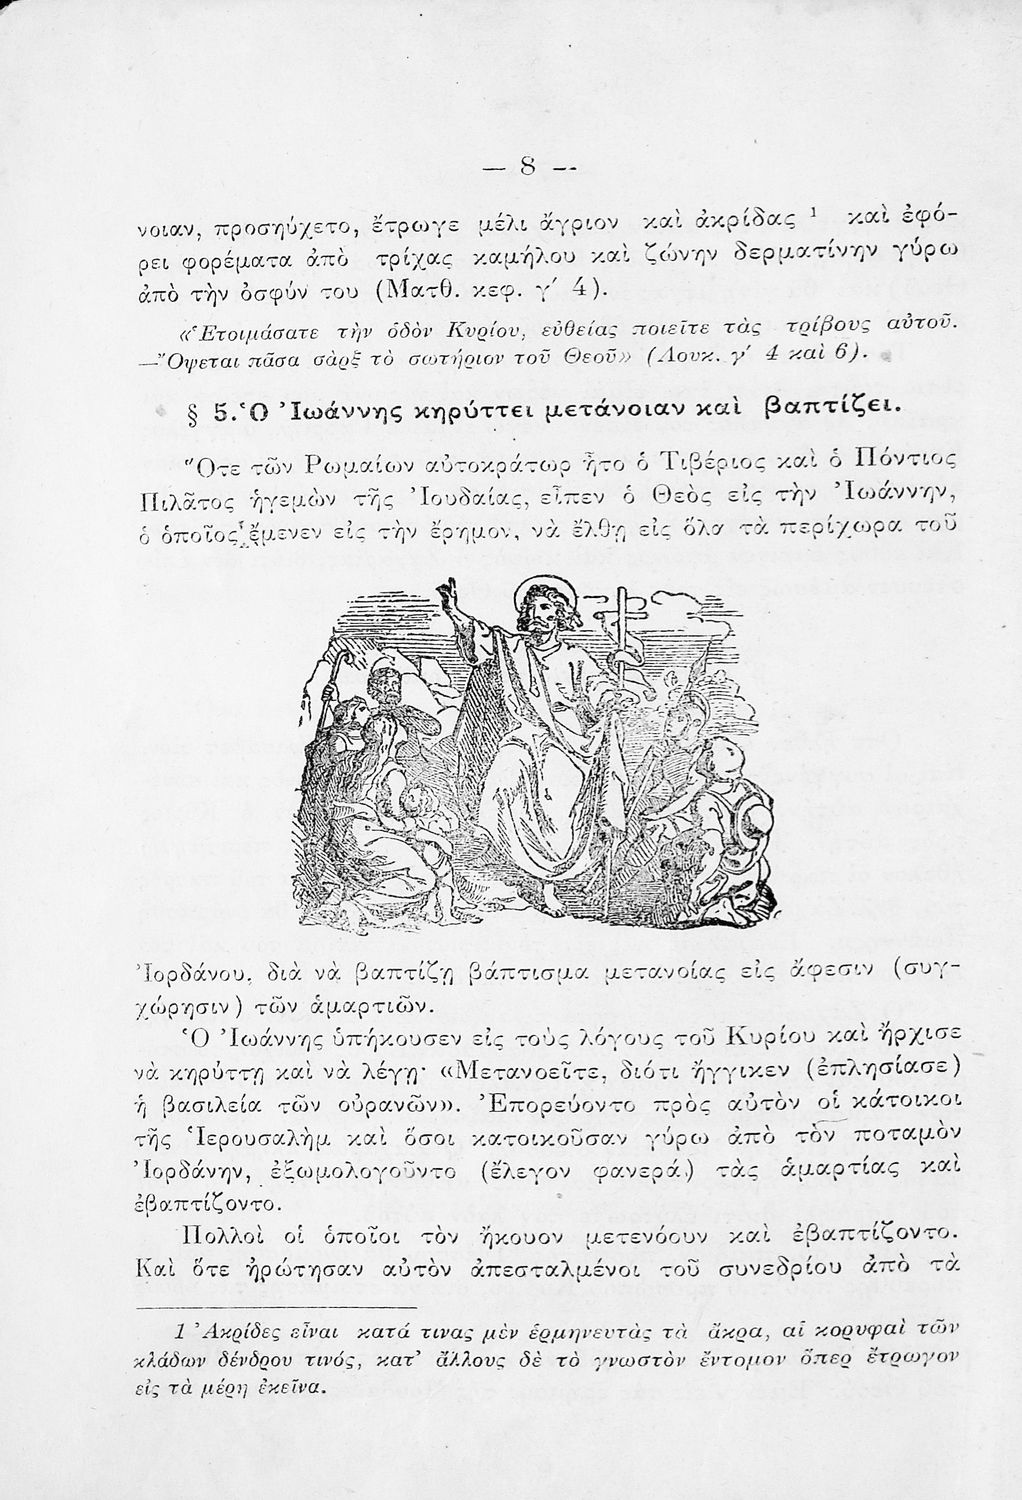 — 8 —
νοιαν, προσηύχετο, ἔτρωγε μέλι ἄγριον καὶ ἀκρίδας ¹ καὶ ἐφό-
ρει φορέματα ἀπὸ τρίχας καμήλου καὶ ζώνην δερματίνην γύρω
ἀπὸ τὴν ὀσφύν του (Ματθ. κεφ. γ′ 4).
«Ἑτοιμάσατε τὴν ὁδὸν Κυρίου, εὐθείας ποιεῖτε τὰς τρίβους αὐτοῦ.
—Ὄψεται πᾶσα σὰρξ τὸ σωτήριον τοῦ Θεοῦ» (Λουκ. γ′ 4 καὶ 6).
§ 5. Ὁ Ἰωάννης κηρύττει μετάνοιαν καὶ βαπτίζει.
Ὅτε τῶν Ρωμαίων αὐτοκράτωρ ἦτο ὁ Τιβέριος καὶ ὁ Πόντιος
Πιλᾶτος ἡγεμὼν τῆς Ἰουδαίας, εἶπεν ὁ Θεὸς εἰς τὴν Ἰωάννην,
ὁ ὁποῖος ἔμενεν εἰς τὴν ἔρημον, νὰ ἔλθῃ εἰς ὅλα τὰ περίχωρα τοῦ
Ἰορδάνου, διὰ νὰ βαπτίζῃ βάπτισμα μετανοίας εἰς ἄφεσιν (συγ-
χώρησιν) τῶν ἁμαρτιῶν.
Ὁ Ἰωάννης ὑπήκουσεν εἰς τοὺς λόγους τοῦ Κυρίου καὶ ἤρχισε
νὰ κηρύττῃ καὶ νὰ λέγῃ· «Μετανοεῖτε, διότι ἤγγικεν (ἐπλησίασε)
ἡ βασιλεία τῶν οὐρανῶν». Ἐπορεύοντο πρὸς αὐτὸν οἱ κάτοικοι
τῆς Ἱερουσαλὴμ καὶ ὅσοι κατοικοῦσαν γύρω ἀπὸ τὸν ποταμὸν
Ἰορδάνην, ἐξωμολογοῦντο (ἔλεγον φανερὰ) τὰς ἁμαρτίας καὶ
ἐβαπτίζοντο.
Πολλοὶ οἱ ὁποῖοι τὸν ἤκουον μετενόουν καὶ ἐβαπτίζοντο.
Καὶ ὅτε ἠρώτησαν αὐτὸν ἀπεσταλμένοι τοῦ συνεδρίου ἀπὸ τὰ
1 Ἀκρίδες εἶναι κατά τινας μὲν ἑρμηνευτὰς τὰ ἄκρα, αἱ κορυφαὶ τῶν
κλάδων δένδρου τινός, κατ' ἄλλους δὲ τὸ γνωστὸν ἔντομον ὅπερ ἔτρωγον
εἰς τὰ μέρη ἐκεῖνα.